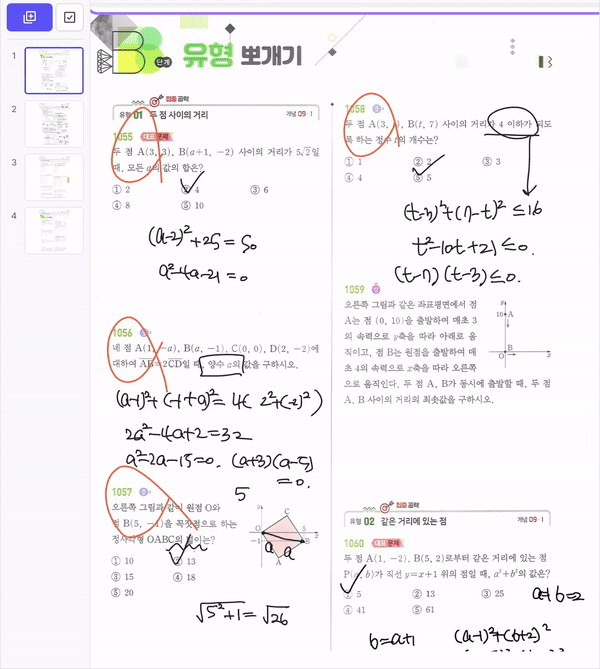 1
2
3
4
B
단계
유형 뽀개기
집중 공략
유형 01 두 점 사이의 거리
개념 09-1
1055 대표 문제
두 점 A(3, 3), B(a+1, -2) 사이의 거리가 5√2일
때, 모든 a의 값의 합은?
① 2
② 4
③ 6
④ 8
⑤ 10
(a-2)²+25=50
a²-4a-21=0
1056 중
네 점 A(1, -a), B(a, -1), C(0, 0), D(2, -2)에
대하여 AB=2CD일 때, 양수 a의 값을 구하시오.
(a-1)²+(-1+a)²=4(2²+(-2)²)
2a²-4a+2=32
a²-2a-15=0. (a+3)(a-5)
=0.
5
1057 중
오른쪽 그림과 같이 원점 O와
점 B(5, -1)을 꼭짓점으로 하는
정사각형 OABC의 넓이는?
① 10
② 13
③ 15
④ 18
⑤ 20
y
C
O
5
x
-1
B
A
a
a
√5²+1=√26
1058 중
두 점 A(3, t), B(t, 7) 사이의 거리가 4 이하가 되도
록 하는 정수 t의 개수는?
① 1
② 2
③ 3
④ 4
⑤ 5
(t-3)²+(7-t)²≤16
t²-10t+21≤0.
(t-7)(t-3)≤0.
1059 상
오른쪽 그림과 같은 좌표평면에서 점
A는 점 (0, 10)을 출발하여 매초 3
의 속력으로 y축을 따라 아래로 움
직이고, 점 B는 원점을 출발하여 매
초 4의 속력으로 x축을 따라 오른쪽
으로 움직인다. 두 점 A, B가 동시에 출발할 때, 두 점
A, B 사이의 거리의 최솟값을 구하시오.
y
10
A
B
O
x
집중 공략
유형 02 같은 거리에 있는 점
개념 09-1
1060 대표 문제
두 점 A(1, -2), B(5, 2)로부터 같은 거리에 있는 점
P(a, b)가 직선 y=x+1 위의 점일 때, a²+b²의 값은?
① 5
② 13
③ 25
④ 41
⑤ 61
a+b=2
b=a+1
(a-1)²+(b+2)²